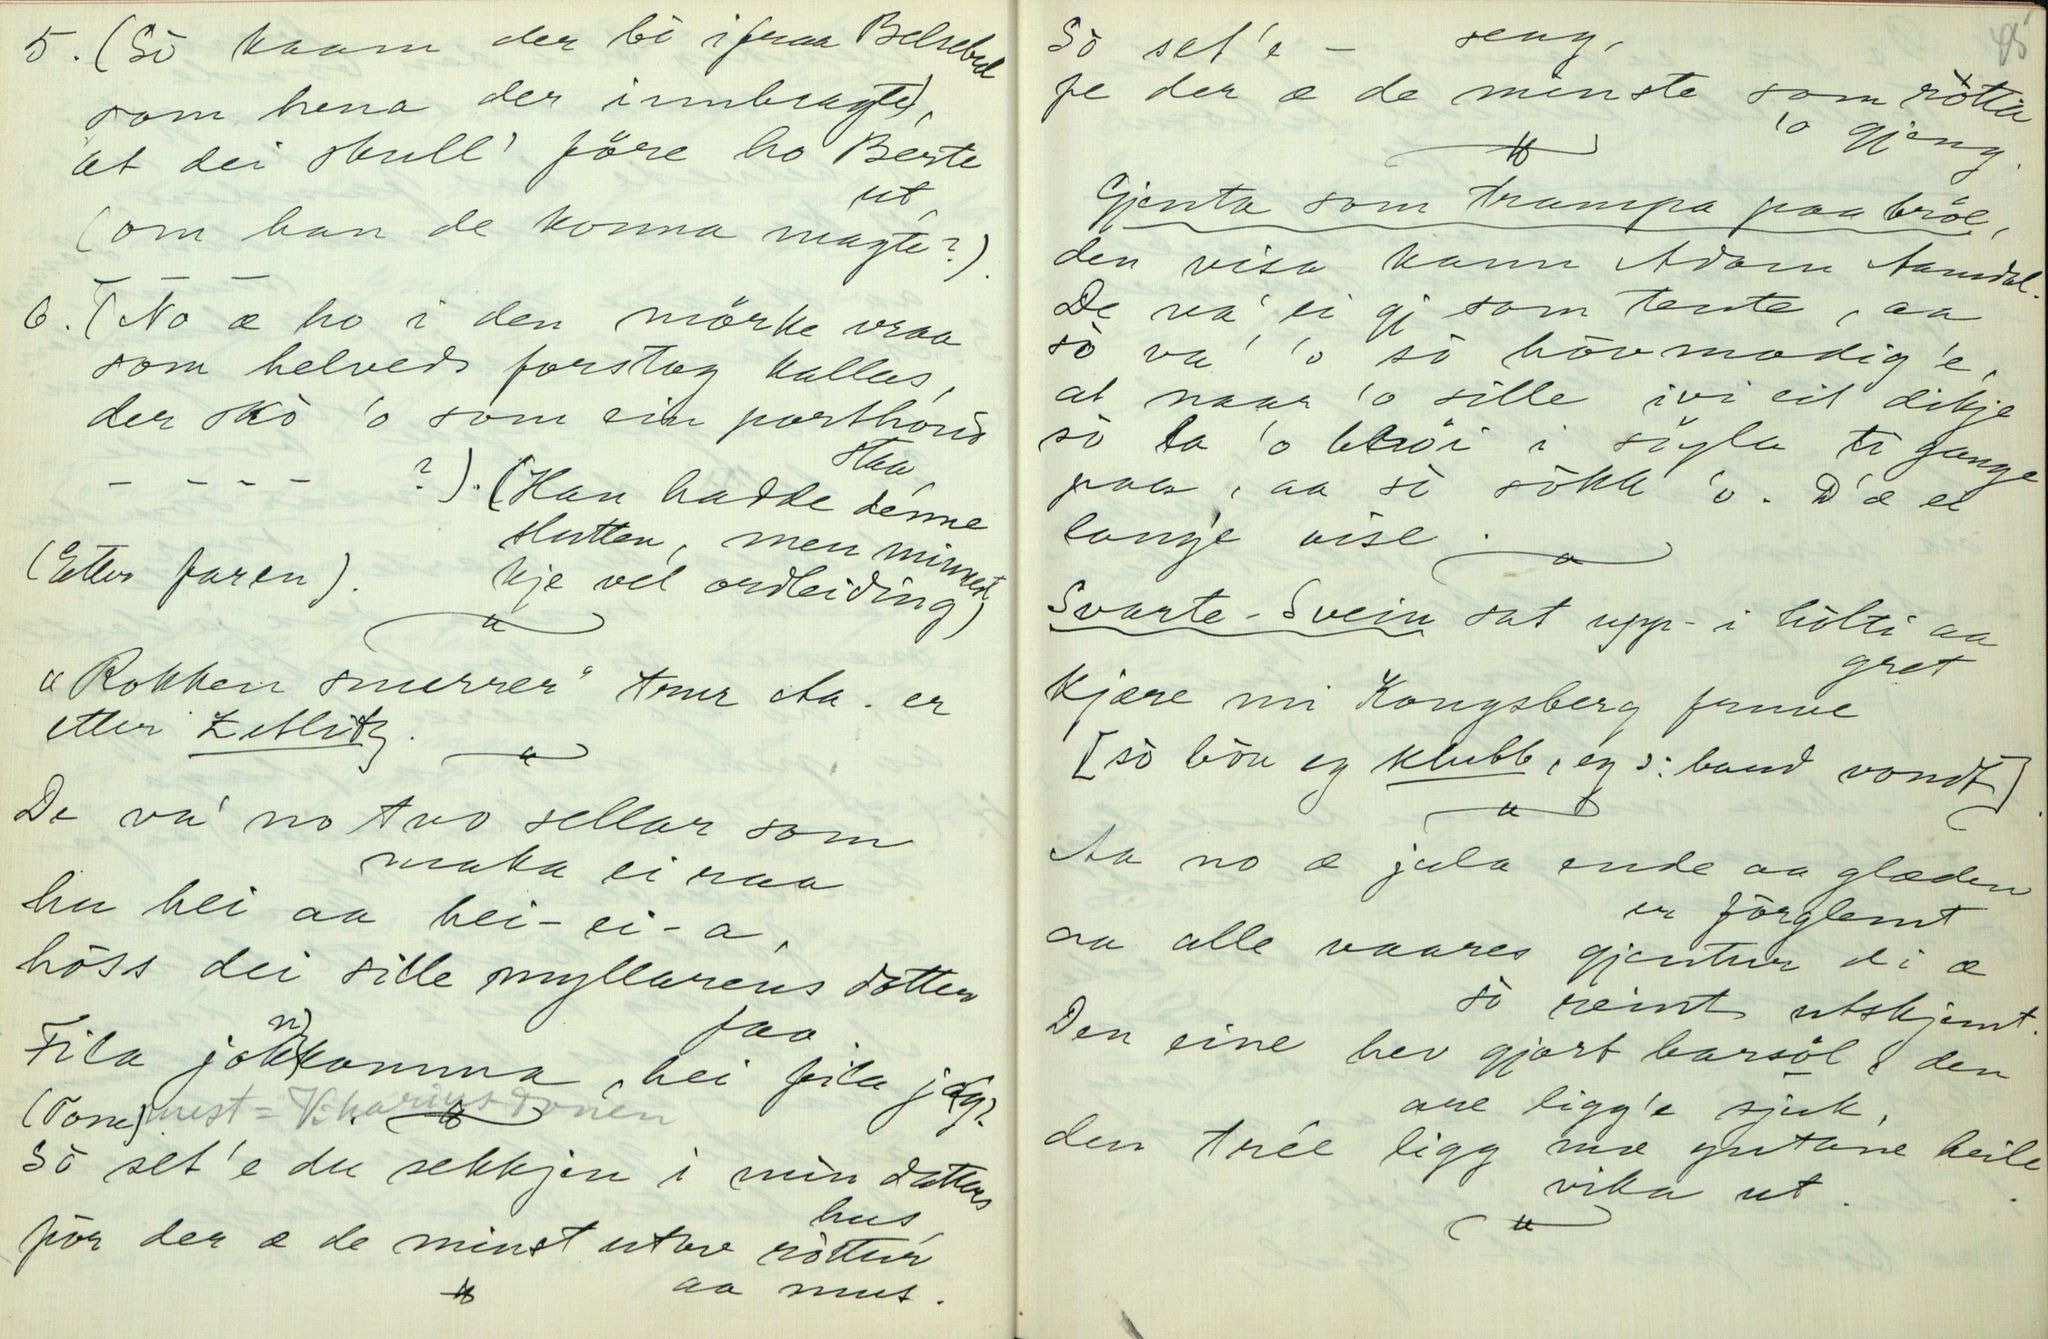 5. (Sò kaam der bò ifraa Belsebub
som hena der innbragte),
at dei skull' före ho Berte
ut,
(om han de konna magte?).
6. (No æ ho i den mörke vraa
som helveds forstog kallas,
der skò 'o som ein porthond
staa
- - - - ?). (Han hadde denne
slutten, men minnest
(Etter faren). kje vel ordleiding)
"Rokken snurrer" trur Aa. er
etter Zetlitz.
De va' no tvo sellar som
maka ei raa
hu hei aa hei-ei-a,
höss dei sille myllarens dotter
faa
Fila jonkomma, hei fila jog?
(Tone) mest = Vikarius tonen
Sò set'e du sekkjen i min dotters
hus,
för der æ de minst utav ròttur
aa mus.
85
Sò set'e - seng,
fe der æ de minste som ròtta
'o gjeng.
Gjenta som trampa paa bröe,
den visa kann Adam Aamdal.
De va' ei gj som tente, aa
sò va' 'o sò hòvmodig'e,
at naar 'o sille ivi eit dikje
sò la 'o bröi i söyla te gange
paa, aa sò sökk 'o. D'æ ei
lang'e vise.
Svarte-Svein sat upp-i hòlti aa
gret
Kjære mi Kongsberg fruve
[sò bön eg klubb, eg ɔ: band vondt]
Aa no æ jula ende aa glæden
er förglemt
aa alle vaares gjentur di æ
sò reint utskjemt.
Den eine hev gjort barsöl, den
are ligg'e sjuk,
den trée ligg mæ gutane heile
vika ut.